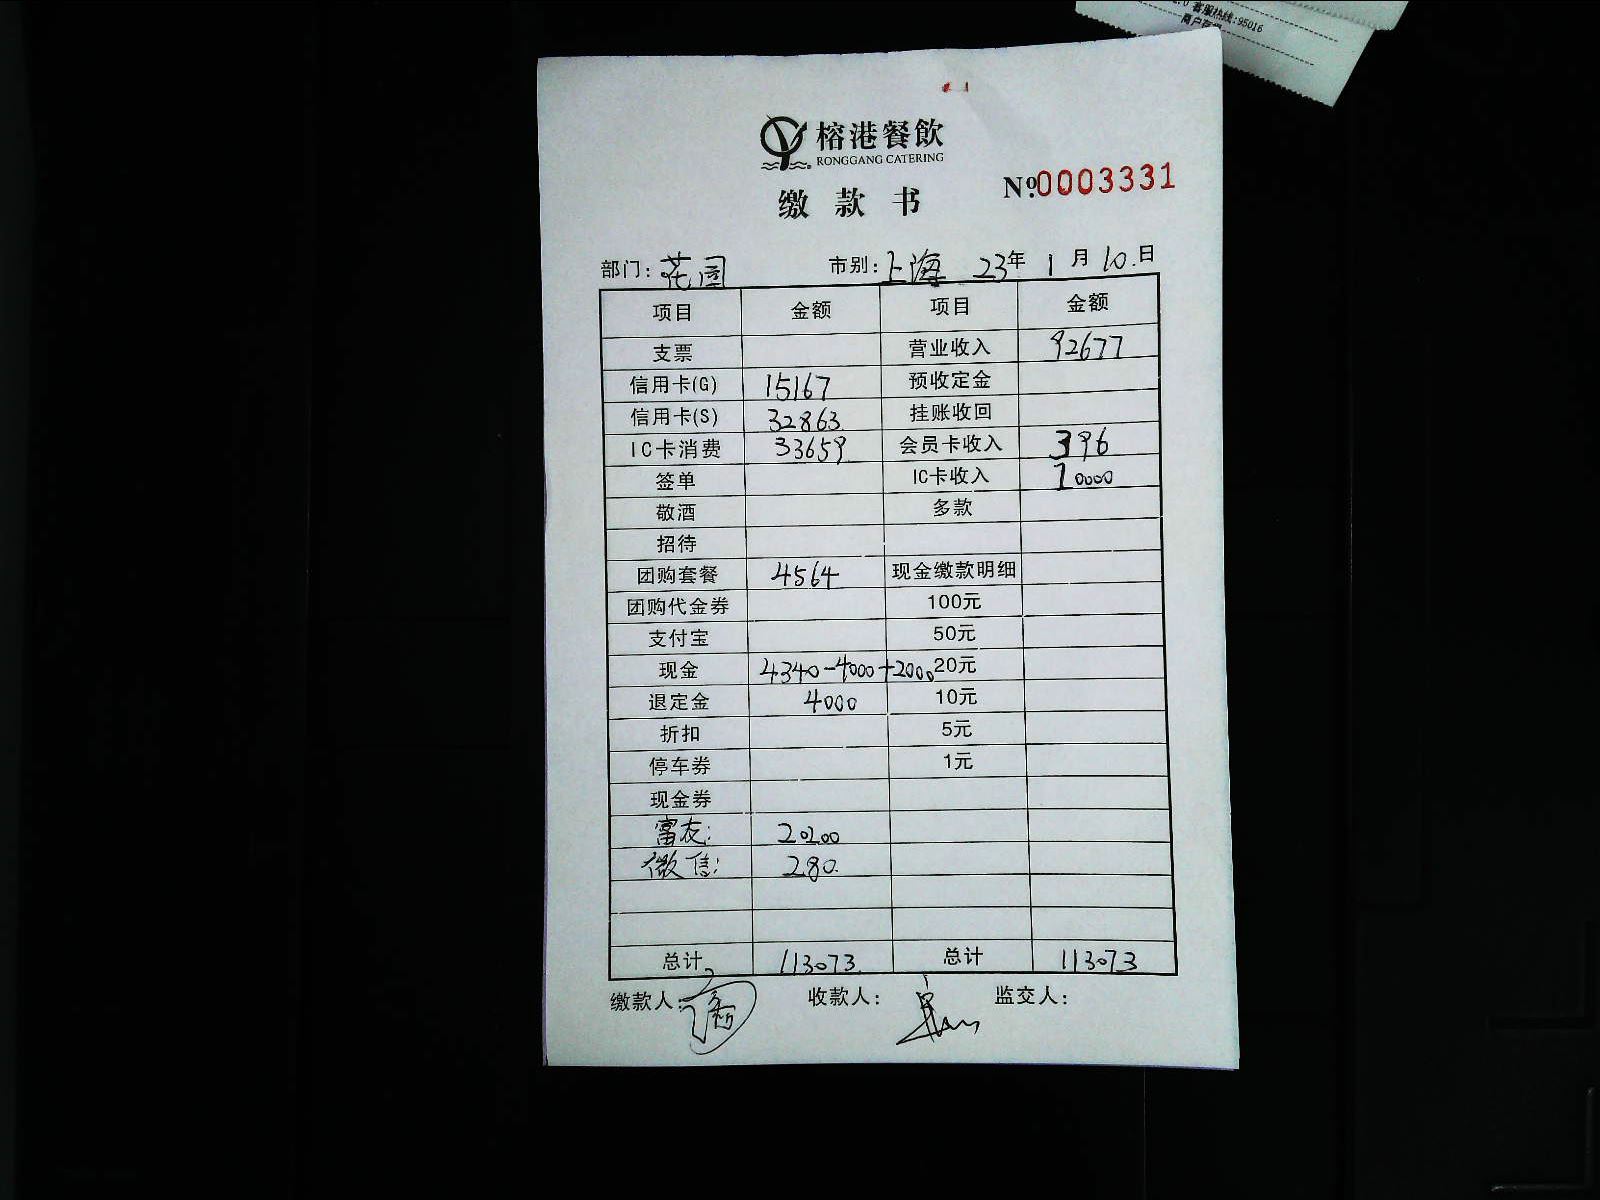 客服热线:95016
榕港餐飲
RONGGANG CATERING
缴款书 №0003331
部门: 花园 市别: 上海 23年 1月 10.日
项目 金额 项目 金额
支票 营业收入 92677
信用卡(G) 15167 预收定金
信用卡(S) 32863 挂账收回
IC卡消费 33659 会员卡收入 396
签单 IC卡收入 20000
敬酒 多款
招待
团购套餐 4564 现金缴款明细
团购代金券 100元
支付宝 50元
现金 4340-4000+2000 20元
退定金 4000 10元
折扣 5元
停车券 1元
现金券
富友: 20200
微信: 280.
总计 113073 总计 113073
缴款人: 收款人: 监交人: